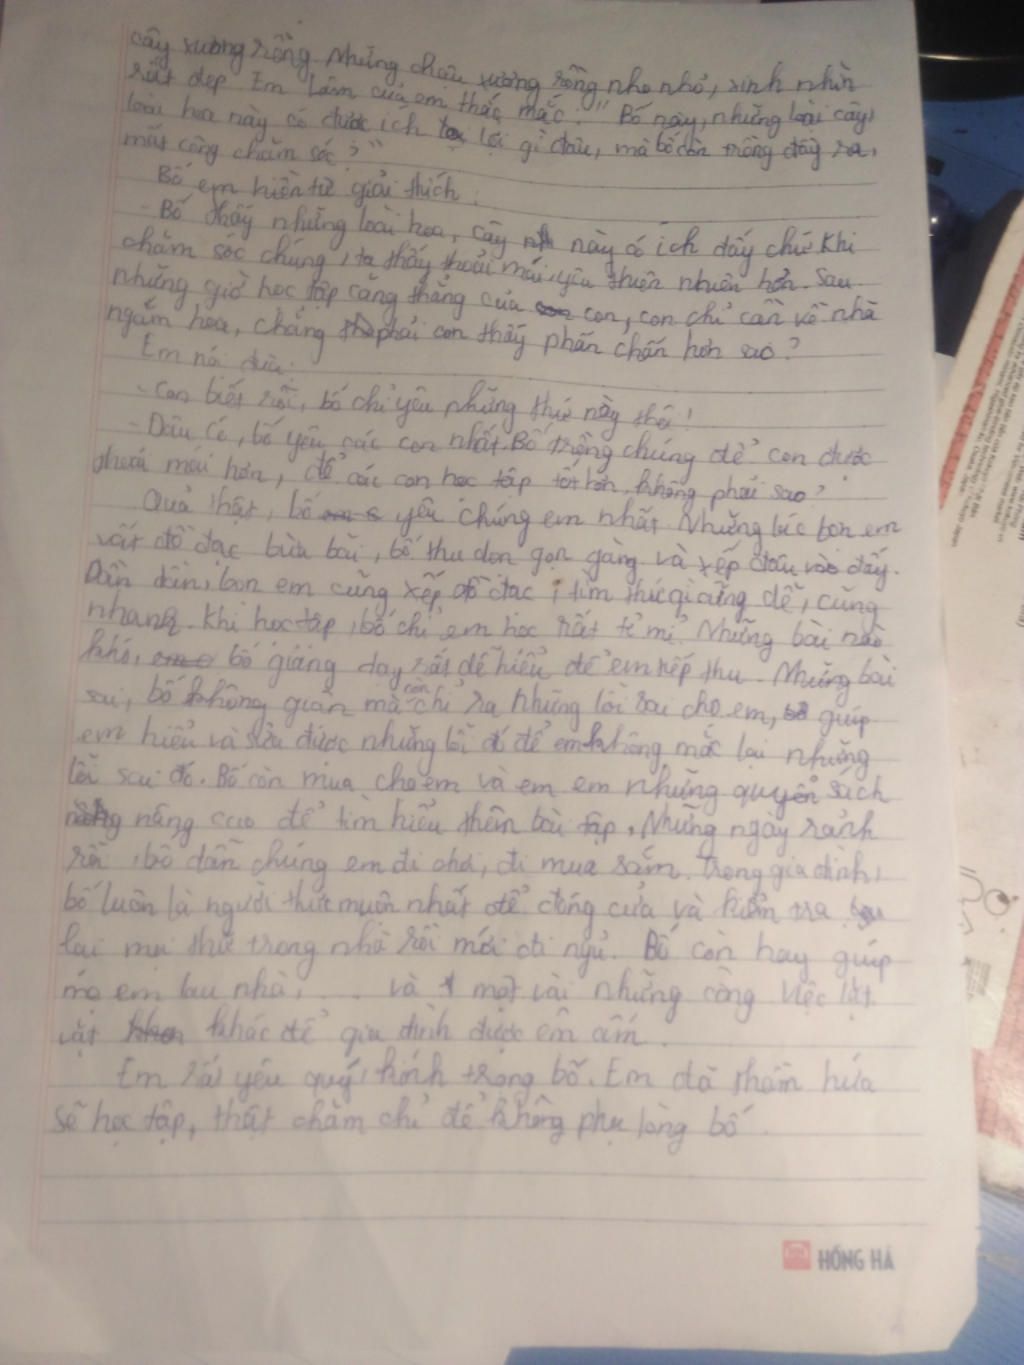 cây xương rồng. Những chậu xương rồng nho nhỏ, xinh nhìn
rất đẹp. Em Lâm của em thắc mắc: "Bố này, những loài cây,
loài hoa này có được ích lợi gì đâu, mà bố còn trồng đầy ra,
mất công chăm sóc?"
Bố em hiền từ giải thích:
- Bố thấy những loài hoa, cây này có ích đấy chứ. Khi
chăm sóc chúng, ta thấy thoải mái, yêu thiên nhiên hơn. Sau
những giờ học tập căng thẳng của con, con chỉ cần về nhà
ngắm hoa, chẳng phải con thấy phấn chấn hơn sao?
Em nói đùa:
- Con biết rồi, bố chỉ yêu những thứ này thôi!
- Đâu có, bố yêu các con nhất. Bố trồng chúng để con được
thoải mái hơn, để các con học tập tốt hơn, không phải sao?
Quả thật, bố yêu chúng em nhất. Những lúc bọn em
vứt đồ đạc bừa bãi, bố thu dọn gọn gàng và xếp đâu vào đấy.
Dần dần, bọn em cũng xếp đồ đạc, tìm thứ gì cũng dễ, cũng
nhanh. Khi học tập, bố chỉ em học rất tỉ mỉ. Những bài nào
khó, bố giảng dạy rất dễ hiểu để em tiếp thu. Những bài
sai, bố không giận mà còn chỉ ra những lỗi sai cho em, giúp
em hiểu và sửa được những lỗi đó để em không mắc lại những
lỗi sai đó. Bố còn mua cho em và em em những quyển sách
nâng cao để tìm hiểu thêm bài tập. Những ngày rảnh
rỗi, bố dẫn chúng em đi chơi, đi mua sắm. Trong gia đình,
bố luôn là người thức muộn nhất để đóng cửa và kiểm tra
lại mọi thứ trong nhà rồi mới đi ngủ. Bố còn hay giúp
mẹ em lau nhà, ... và một vài những công việc lặt
vặt khác để gia đình được êm ấm.
Em rất yêu quý, kính trọng bố. Em đã thầm hứa
sẽ học tập, thật chăm chỉ để không phụ lòng bố.
HỒNG HÀ